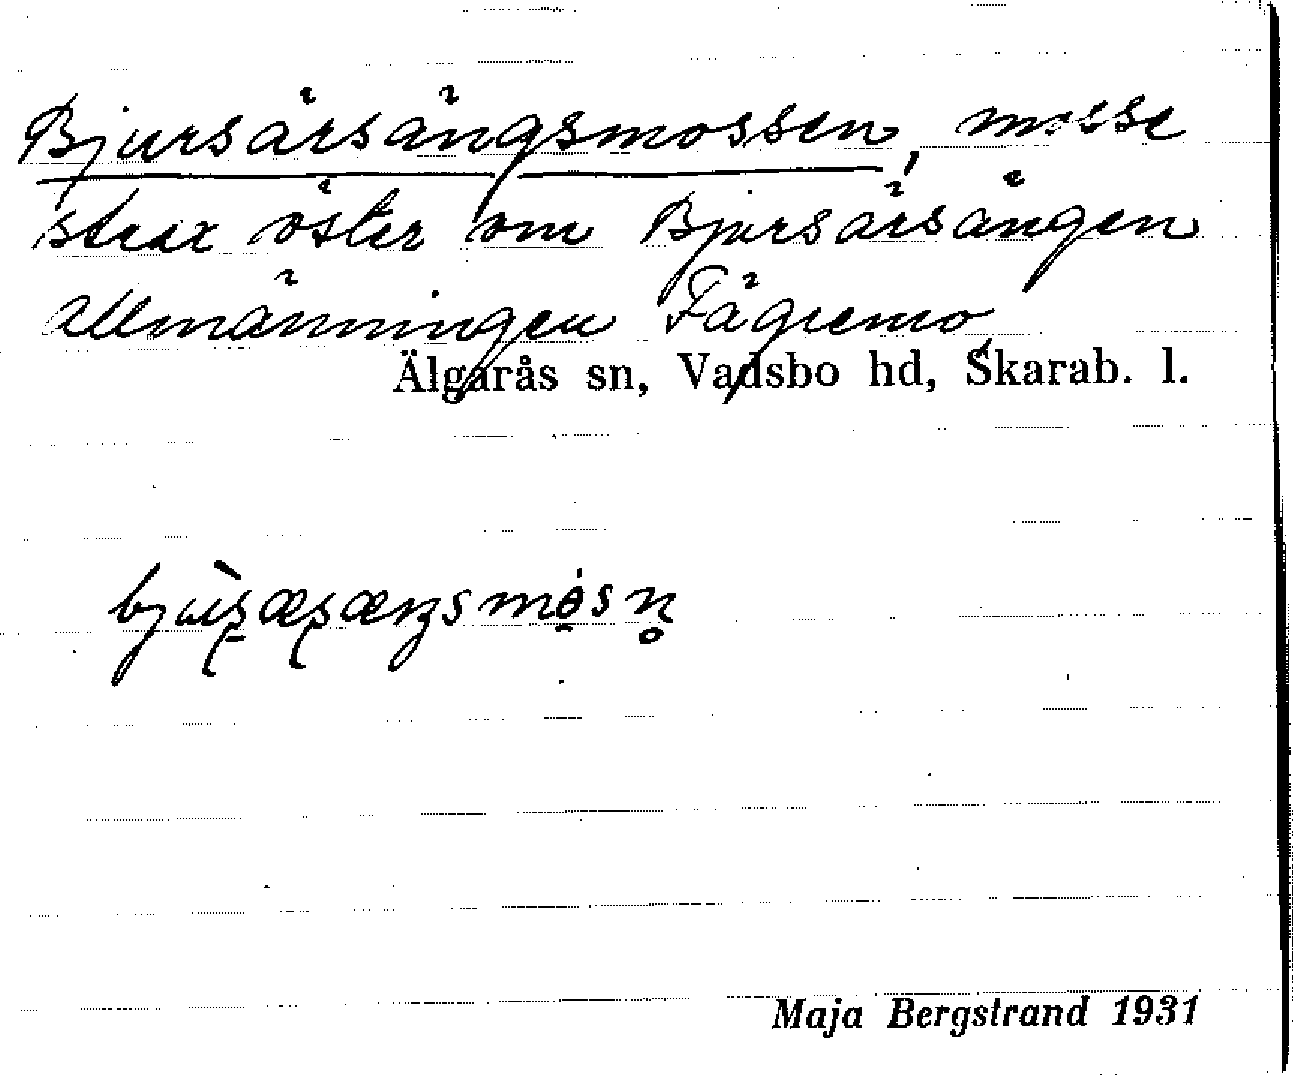 Bjursärsängsmossen, mosse
strax öster om Bjursärsängen
allmänningen Fägremo
Älgarås sn, Vadsbo hd, Skarab. l.
Maja Bergstrand 1931